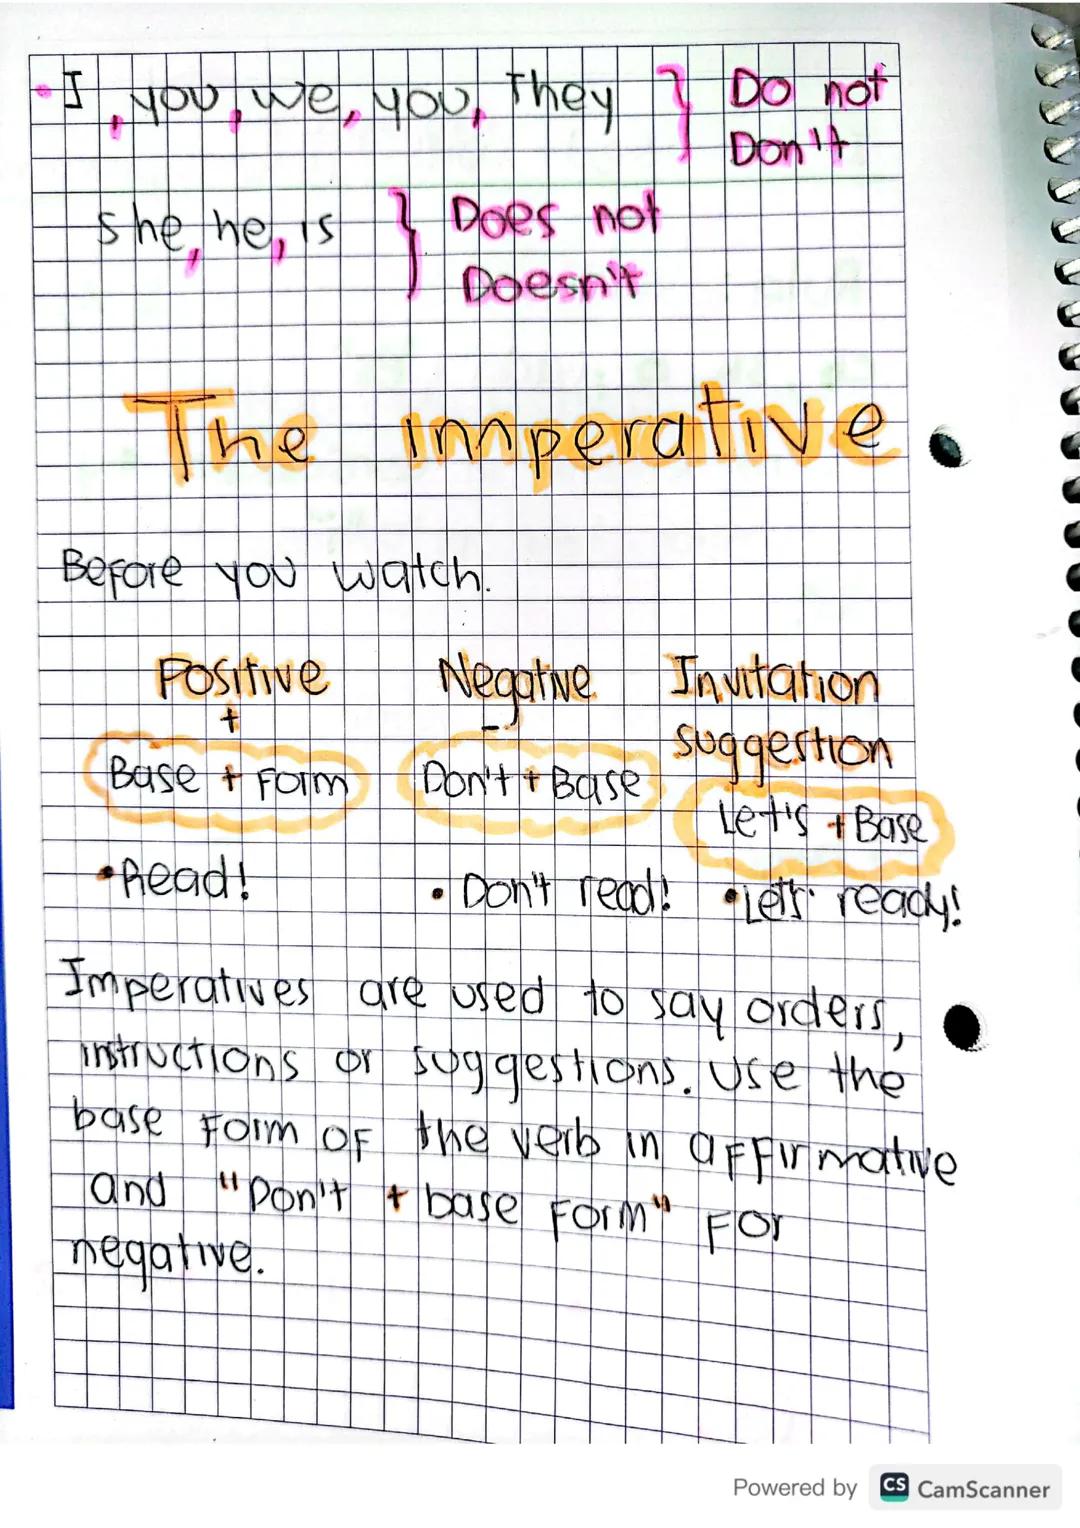 • I, you, we, you, They } Do not
Don't
she, he, is } Does not
Doesn't
The imperative
Before you watch.
Positive Negative Invitation
+ - suggestion
Base + Form Don't + Base
Let's + Base
• Read! • Don't read! • Let's ready!
Imperatives are used to say orders,
instructions or suggestions. Use the
base Form OF the verb in affirmative
and "Don't + base Form" For
negative.
Powered by CS CamScanner